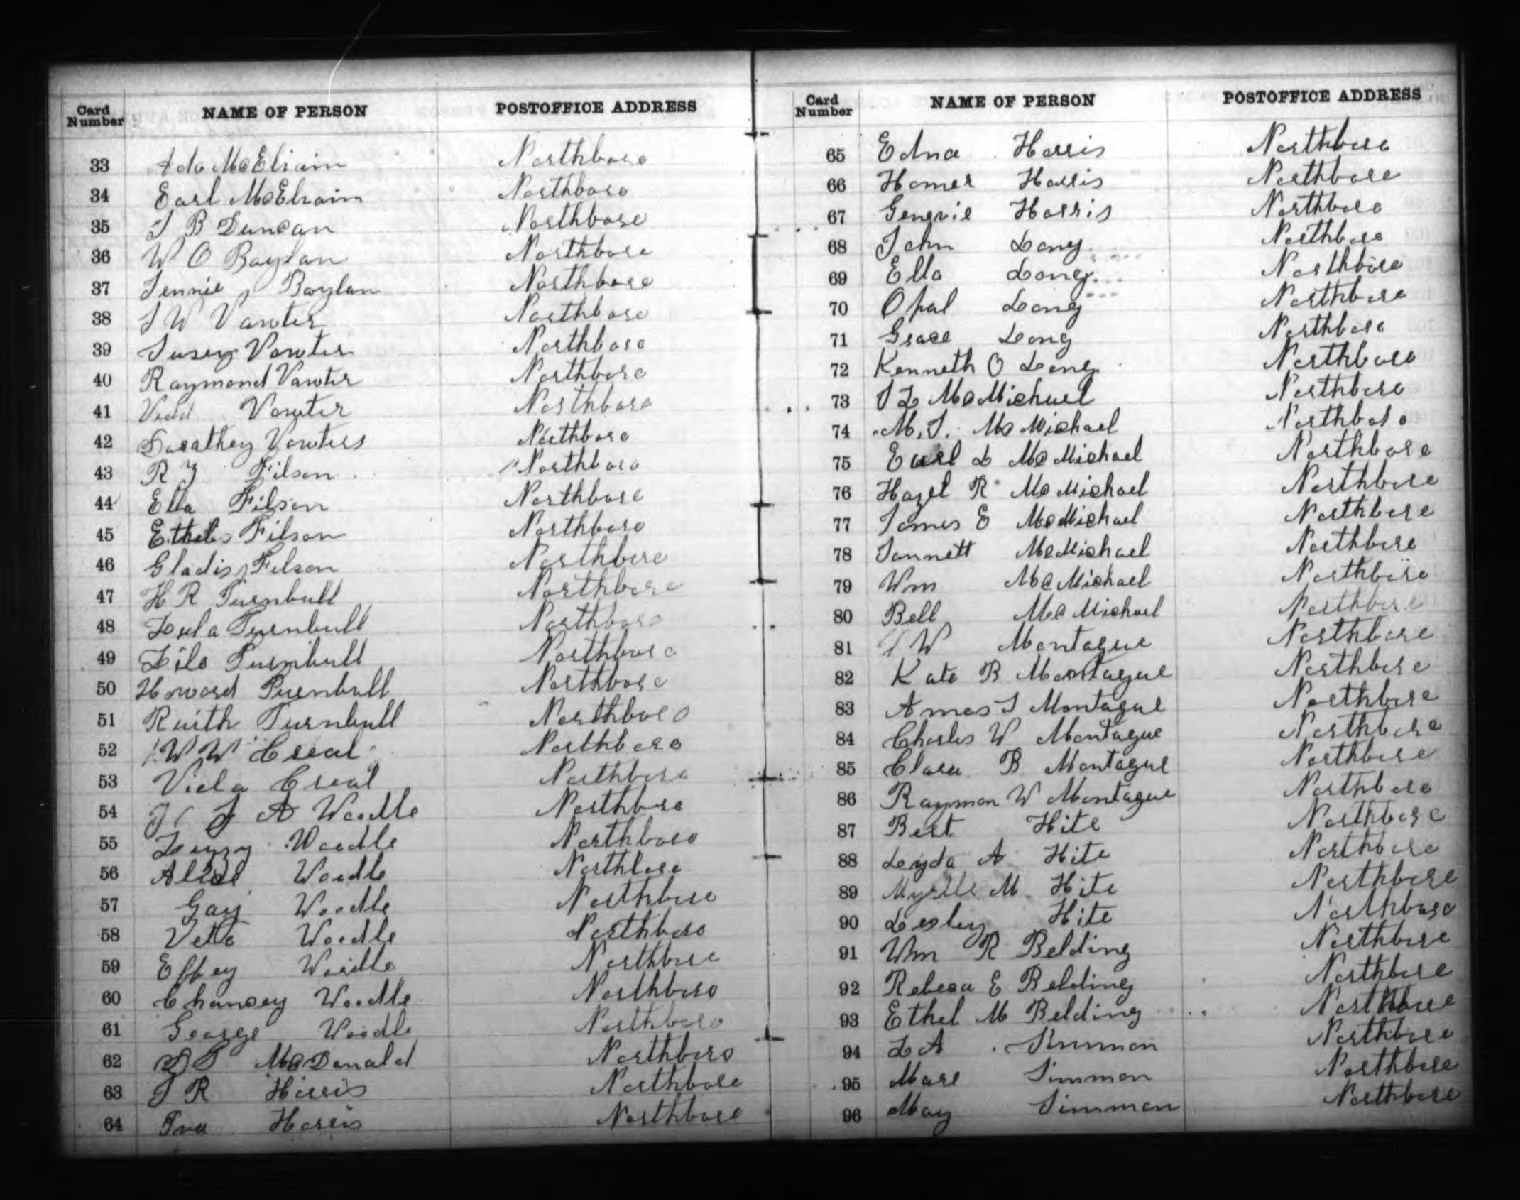 Card Number NAME OF PERSON POSTOFFICE ADDRESS
33 Ada McElvain Northboro
34 Earl McElvain Northboro
35 J B Duncan Northboro
36 W O Baylan Northboro
37 Jennie Baylan Northboro
38 J W Vawter Northboro
39 Susey Vawter Northboro
40 Raymond Vawter Northboro
41 Vawter Northboro
42 Dorathey Vawters Northboro
43 R J Filson Northboro
44 Ella Filson Northboro
45 Ethel Filson Northboro
46 Gladis Filson Northboro
47 H R Turnbull Northboro
48 Lula Turnbull Northboro
49 Lila Turnbull Northboro
50 Howard Turnbull Northboro
51 Ruith Turnbull Northboro
52 W W Creal Northboro
53 Viola Creal Northboro
54 J A Woodle Northboro
55 Lizzy Woodle Northboro
56 Woodle Northboro
57 Gay Woodle Northboro
58 Veta Woodle Northboro
59 Effey Woodle Northboro
60 Chancey Woodle Northboro
61 George Woodle Northboro
62 McDonald Northboro
63 J R Harris Northboro
64 Iva Harris Northboro
Card Number NAME OF PERSON POSTOFFICE ADDRESS
65 Edna Harris Northboro
66 Homer Harris Northboro
67 Genevie Harris Northboro
68 John Long Northboro
69 Ella Long Northboro
70 Opal Long Northboro
71 Grace Long Northboro
72 Kenneth O Long Northboro
73 J L McMichael Northboro
74 M. J. McMichael Northboro
75 Earl L McMichael Northboro
76 Hazel R McMichael Northboro
77 James E McMichael Northboro
78 Jannett McMichael Northboro
79 Wm McMichael Northboro
80 Bell McMichael Northboro
81 W Montague Northboro
82 Kate B Montague Northboro
83 Amos J Montague Northboro
84 Charles W Montague Northboro
85 Clara B Montague Northboro
86 Raymon W Montague Northboro
87 Bert Hite Northboro
88 Leyda A Hite Northboro
89 Myrtle M Hite Northboro
90 Lesley Hite Northboro
91 Wm R Belding Northboro
92 Rebeca E Belding Northboro
93 Ethel M Belding Northboro
94 L A Simmon Northboro
95 Mare Simmon Northboro
96 May Simmon Northboro